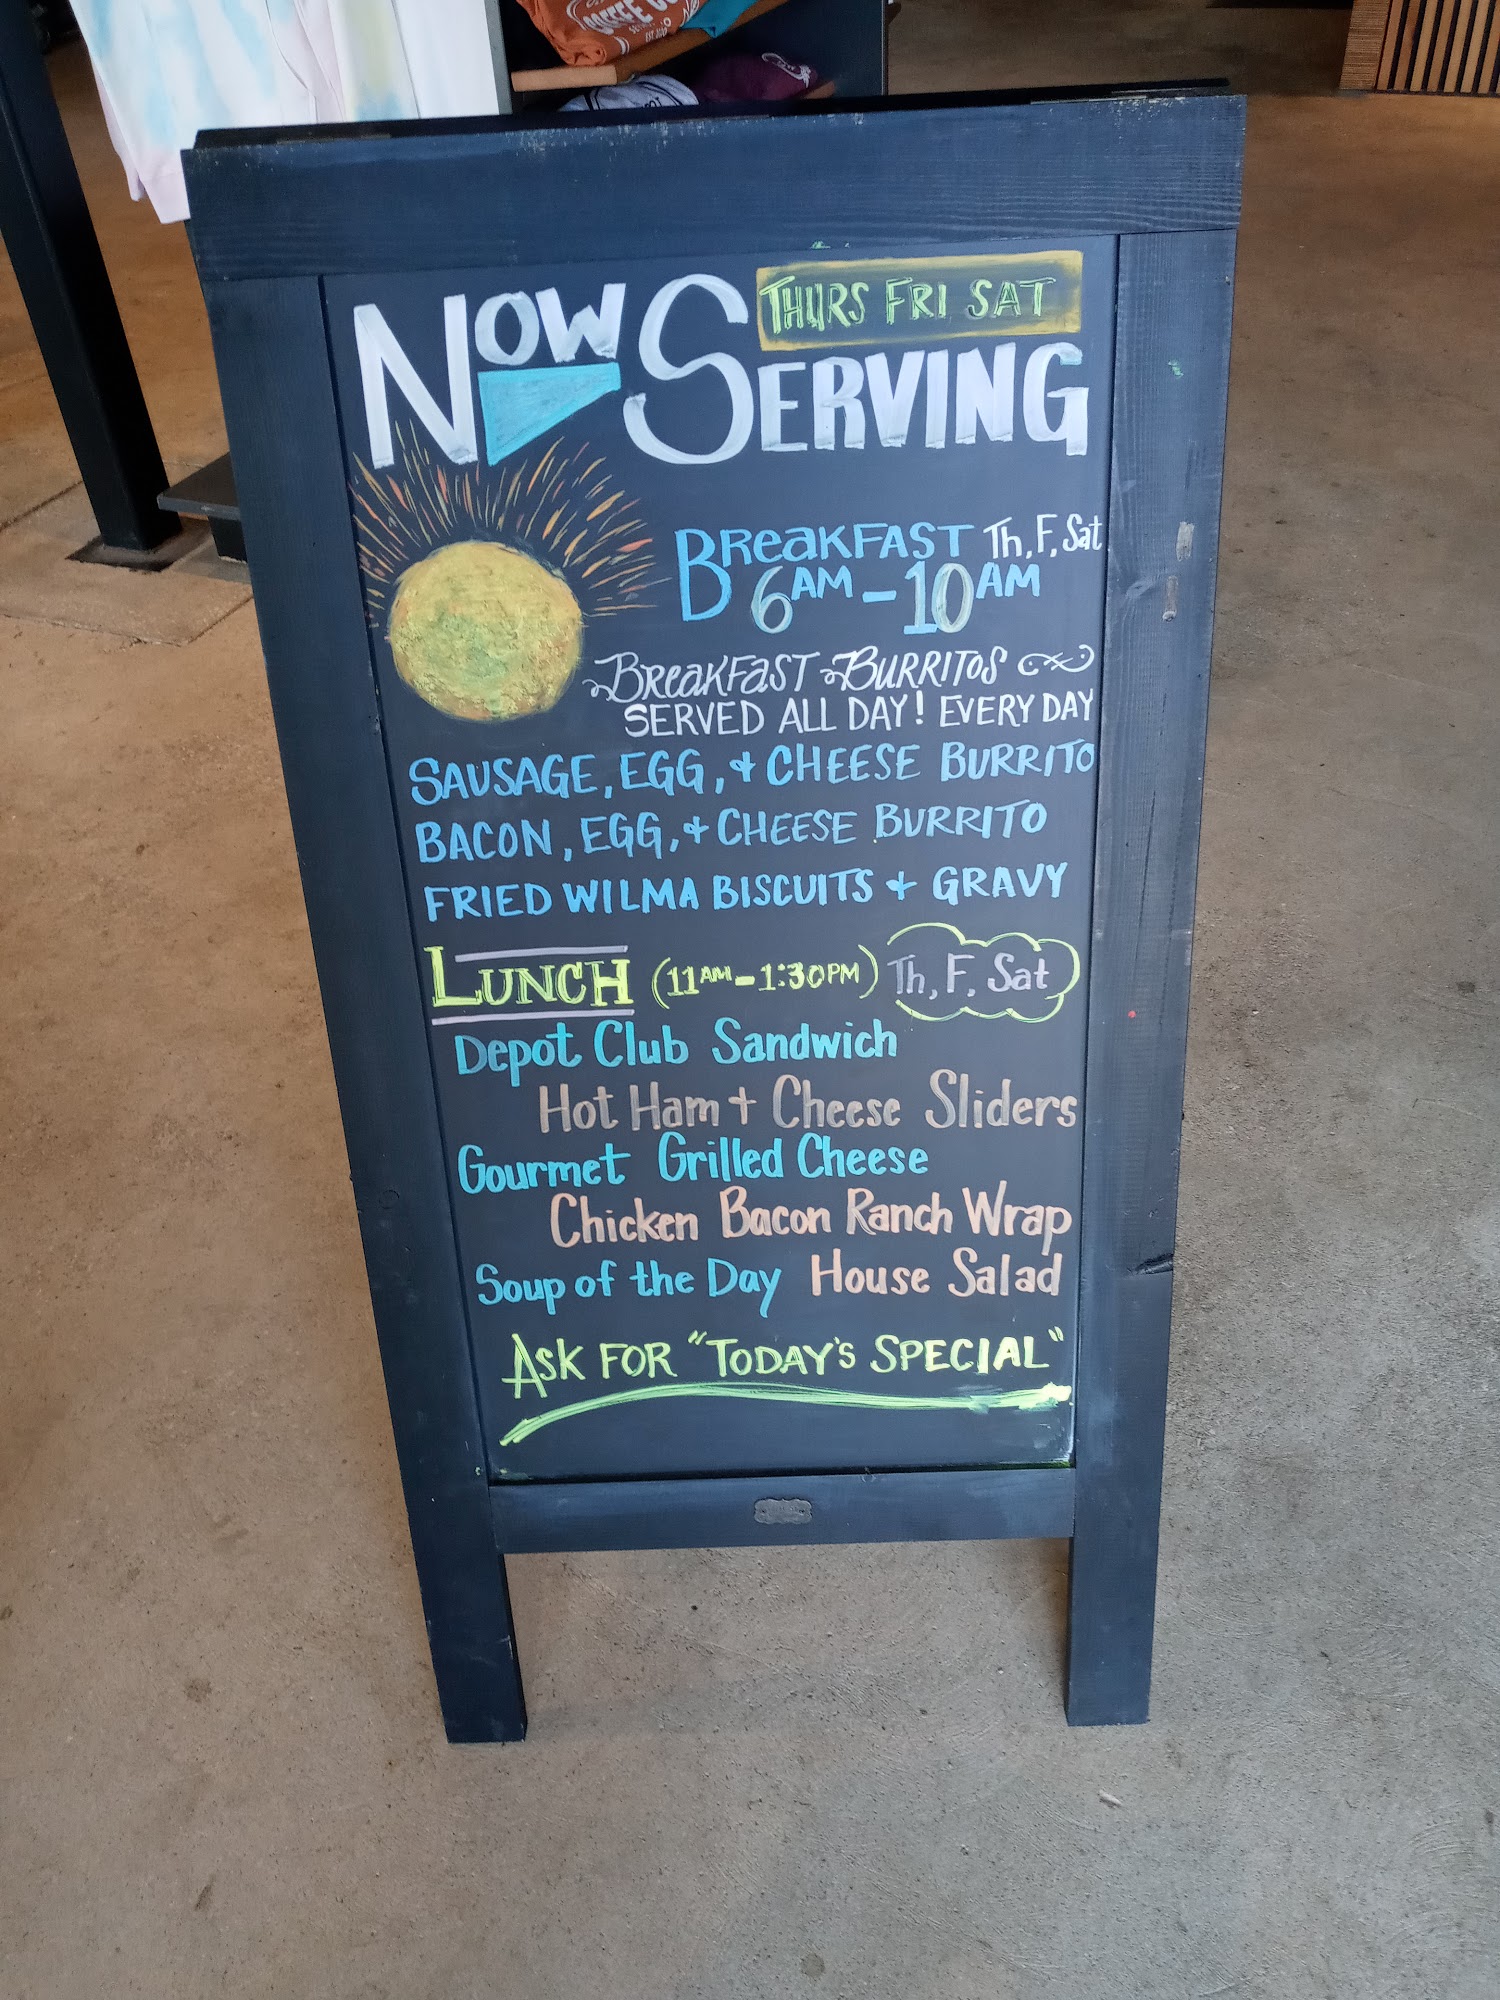 COFFEE CO
EST.
THURS FRI SAT
NOW SERVING
BREAKFAST Th, F, Sat
6AM - 10AM
BREAKFAST BURRITOS
SERVED ALL DAY! EVERY DAY
SAUSAGE, EGG, & CHEESE BURRITO
BACON, EGG, & CHEESE BURRITO
FRIED WILMA BISCUITS & GRAVY
LUNCH (11AM-1:30PM) Th, F, Sat
Depot Club Sandwich
Hot Ham + Cheese Sliders
Gourmet Grilled Cheese
Chicken Bacon Ranch Wrap
Soup of the Day House Salad
ASK FOR "TODAY'S SPECIAL"